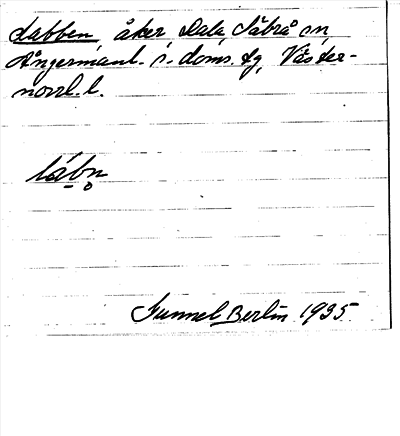 Labben, åker, Dala, Säbrå sn
Ångermanl. s. doms. tg, Väster-
norrl. l.
lábn̥
Gunnel Berlin 1935